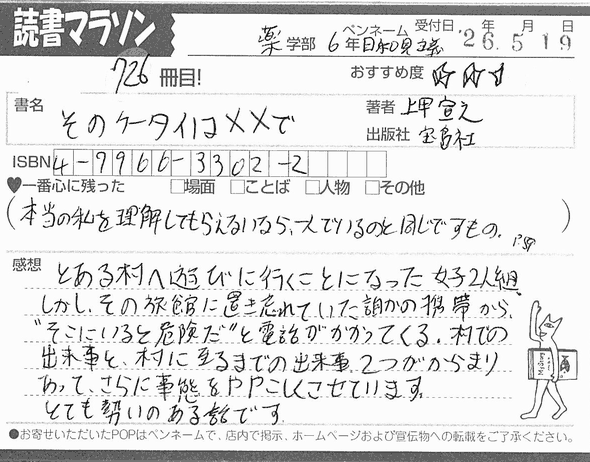 読書マラソン
薬学部 6年 ペンネーム 日和見主義 受付日 '26年5月19日
726冊目! おすすめ度 ☆☆☆
書名 そのケータイは××で
著者 上甲宣之
出版社 宝島社
ISBN 4-7966-3302-2
♥一番心に残った □場面 □ことば □人物 □その他
(本当の私を理解してもらえないなら、死んでいるのと同じですもの。)
感想 とある村へ遊びに行くことになった女子2人組。
しかし、その旅館に置き忘れていた誰かの携帯から、
"そこにいると危険だ"と電話がかかってくる。村での
出来事と、村に至るまでの出来事、2つがからまり
あって、さらに事態をややこしくさせています。
とても勢いのある話です。
●お寄せいただいたPOPはペンネームで、店内で掲示、ホームページおよび宣伝物への転載をご了承ください。